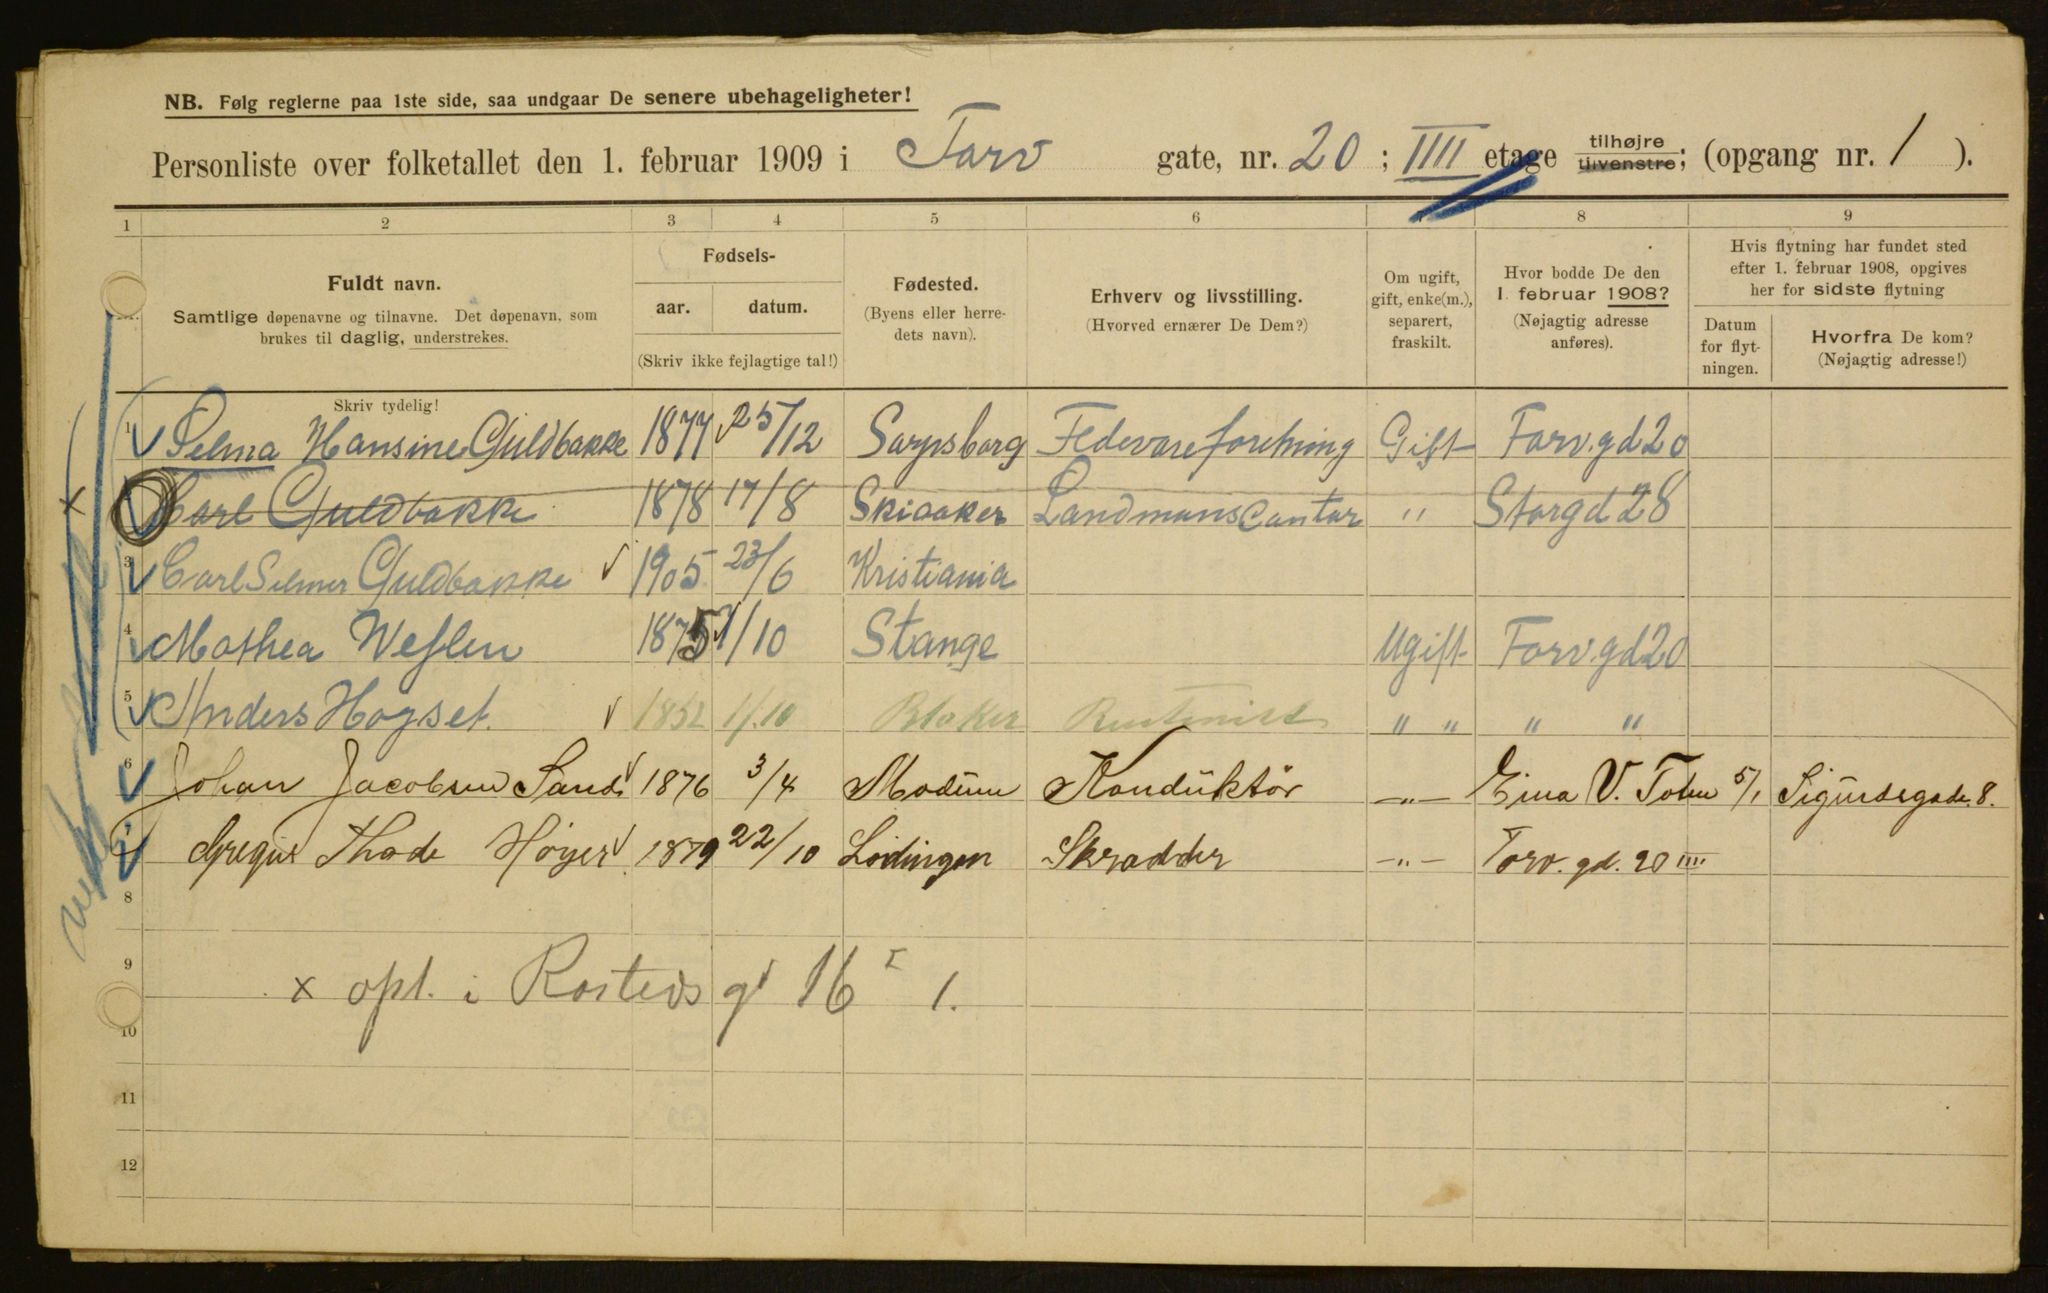 NB. Følg reglerne paa 1ste side, saa undgaar De senere ubehageligheter!
Personliste over folketallet den 1. februar 1909 i Torv gate, nr. 20 ; IIII etage tilhøjre tilvenstre; (opgang nr. 1 ).
1 2 3 4 5 6 7 8 9
Fuldt navn.
Samtlige døpenavne og tilnavne. Det døpenavn, som
brukes til daglig, understrekes.
Skriv tydelig!
Fødsels-
aar. datum.
(Skriv ikke fejlagtige tal!)
Fødested.
(Byens eller herre-
dets navn).
Erhverv og livsstilling.
(Hvorved ernærer De Dem?)
Om ugift,
gift, enke(m.),
separert,
fraskilt.
Hvor bodde De den
1. februar 1908?
(Nøjagtig adresse
anføres).
Hvis flytning har fundet sted
efter 1. februar 1908, opgives
her for sidste flytning
Datum
for flyt-
ningen.
Hvorfra De kom?
(Nøjagtig adresse!)
1 Selma Hansine Guldbakke 1877 25/12 Sarpsborg Fedevareforetning Gift Torv.gd 20
Carl Guldbakke 1878 17/8 Skiaaker Landmans Contor " Storgd 28
3 Carl Selmer Guldbakke 1905 23/6 Kristiania
4 Mathea Weflen 1875 1/10 Stange Ugift Torv.gd 20
5 Anders Hogset 1852 1/10 " " " "
6 Johan Jacobsen Sand 1876 3/4 Modum Konduktør -"- Eina V. Toten 5/1 Sigurdsgade 8.
7 Gregus Thode Høyer 1879 22/10 Lødingen Skrædder -"- Torv. gd. 20 IIII
8
9
x opt. i Rosteds gd 16 I 1.
10
11
12